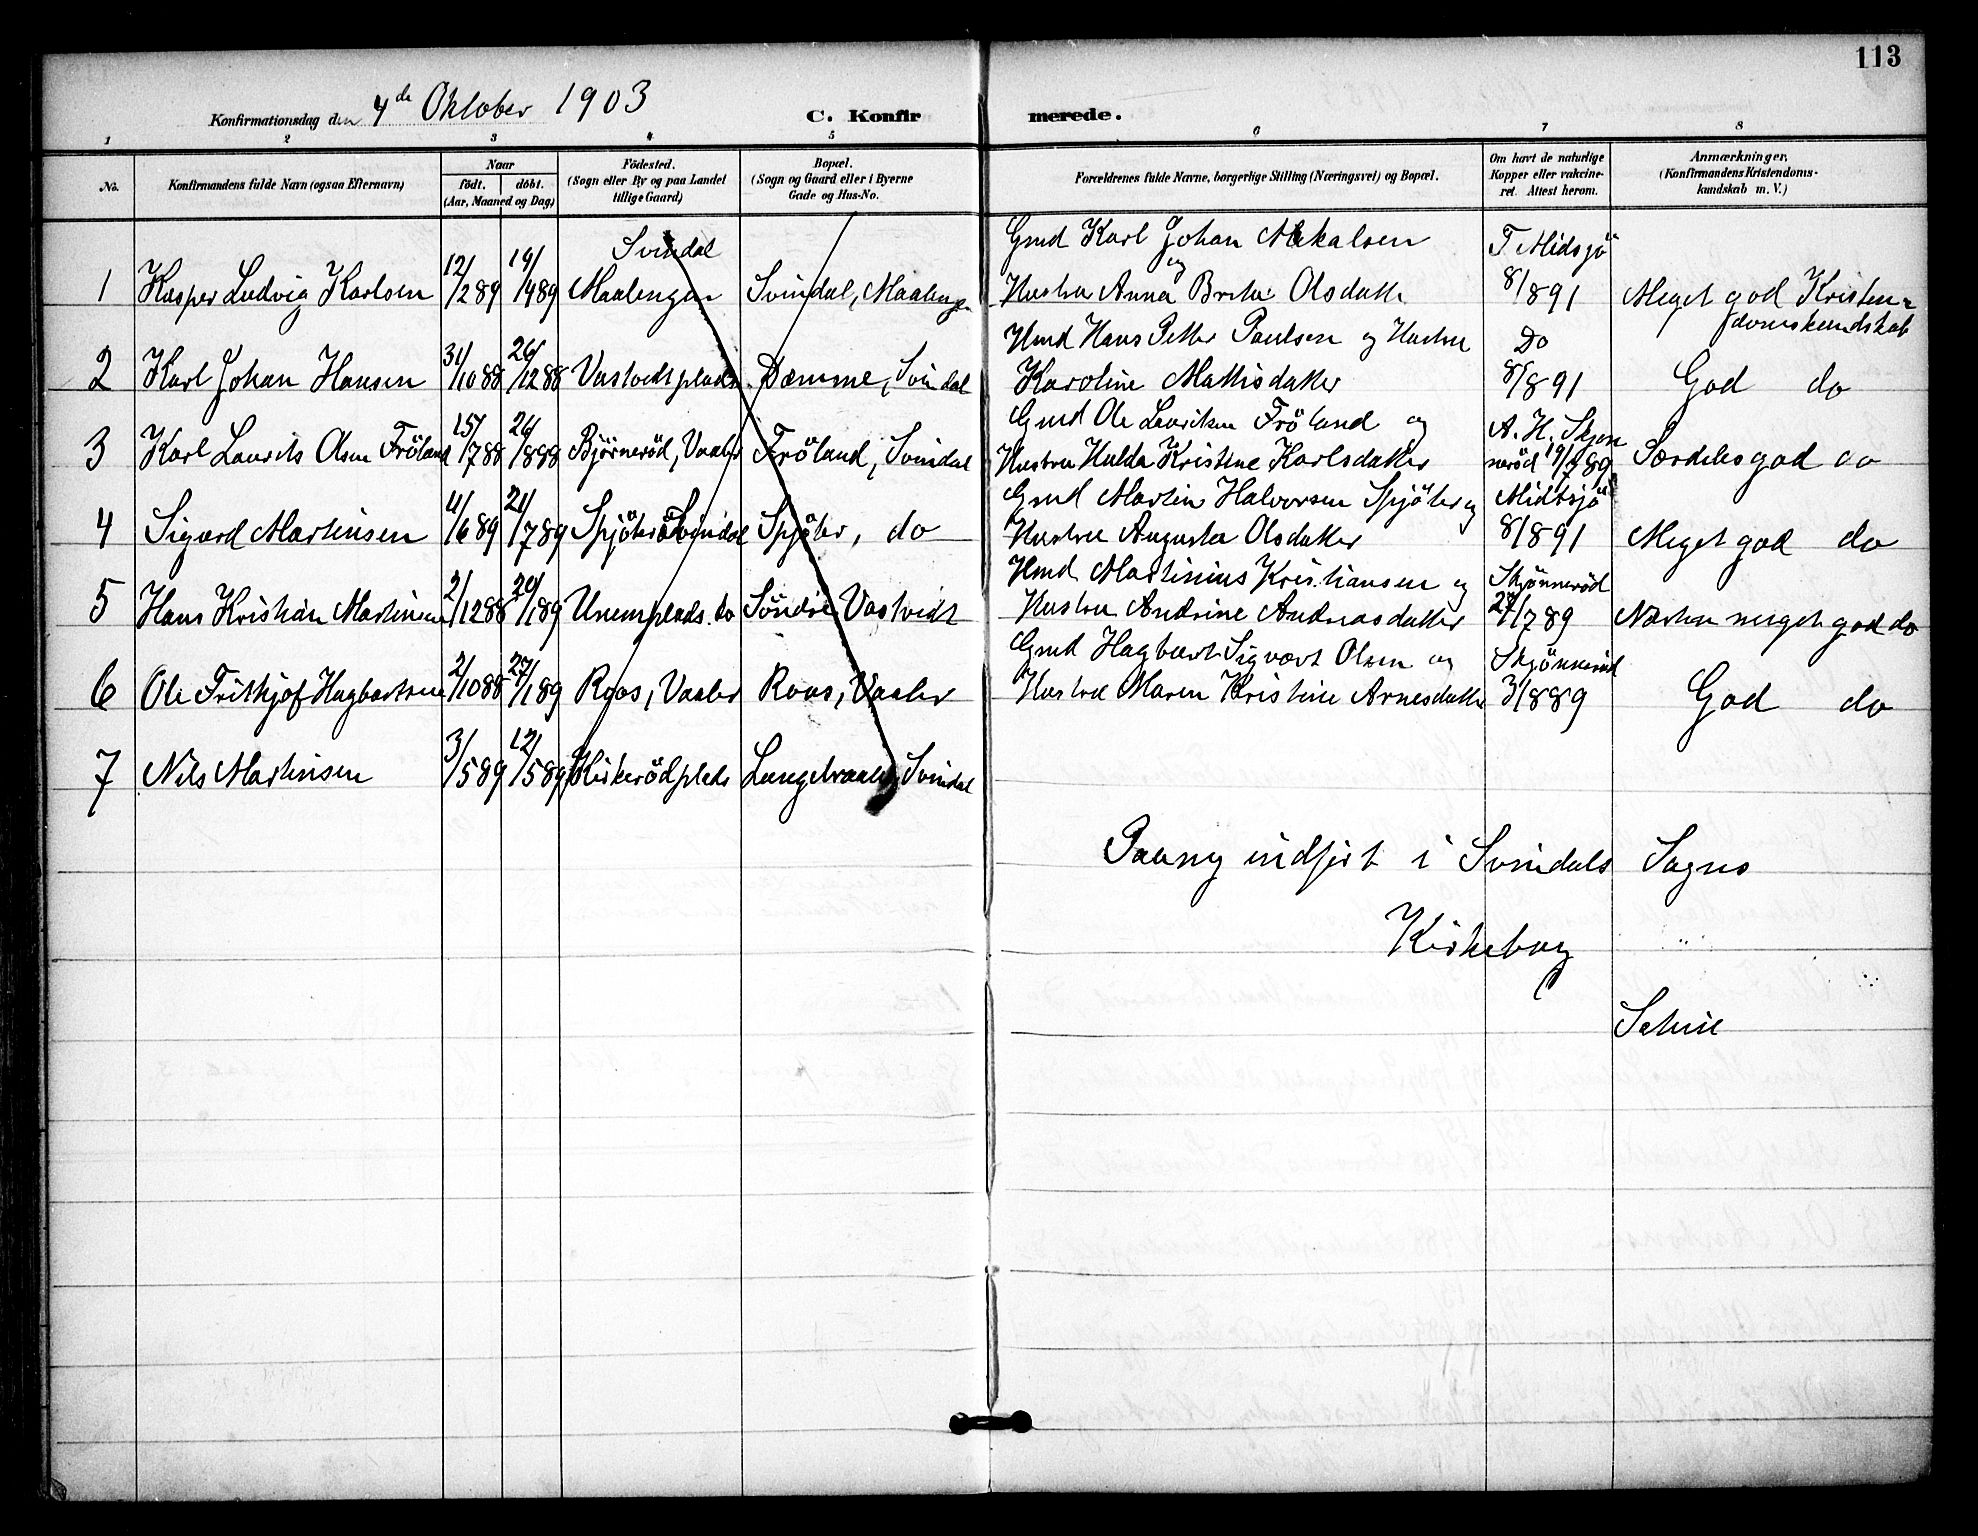 113
Konfirmationsdag den 4de Oktober 1903 C. Konfirmerede.
1 2 3 4 5 6 7 8
No. Konfirmandens fulde Navn (ogsaa Efternavn) Naar født. døbt. (Aar, Maaned og Dag) Fødested. (Sogn eller By og paa Landet tillige Gaard) Bopæl. (Sogn og Gaard eller i Byerne Gade og Hus-No. Forældrenes fulde Navne, borgerlige Stilling (Næringsvei) og Bopæl. Om havt de naturlige Kopper eller vakcineret. Attest herom. Anmærkninger. (Konfirmandens Kristendomskundskab m. V.)
1 Kasper Ludvig Karlsen 12/289 19/489 Svindal Maalengen Svindal, Maalengen Gmd Karl Johan Mekalsen og Hustru Anna Brita Olsdatter T Midsjö 8/891 Meget god Kristendomskundskab
2 Karl Johan Hansen 31/1088 26/1288 Vastvedtplads Damme, Svindal Hmd Hans Petter Paulsen og Hustru Karoline Mathisdatter Do 8/891 God do
3 Karl Laurits Olsen Fröland 15/788 26/888 Björneröd, Vaaler Fröland, Svindal Gmd Ole Lauritsen Fröland og Hustru Hulda Kristine Karlsdatter A. H. Skjönneröd 19/789 Særdeles god do
4 Sigvard Martinsen 11/689 21/789 Spjöter Svindal Spjöter, do Gmd Martin Halvorsen Spjöter og Hustru Augusta Olsdatter Midtsjö 8/891 Meget god do
5 Hans Kristian Martinsen 2/1288 20/189 Unemplads. do Söndre Vastvedt Hmd Martinius Kristiansen og Hustru Andrine Andreasdatter Skjönneröd 27/789 Næsten meget god do
6 Ole Frithjof Hagbartsen 2/1088 27/189 Roos, Vaaler Roos, Vaaler Gmd Hagbart Sigvart Olsen og Hustru Maren Kristine Arnesdatter Skjönneröd 3/889 God do
7 Nils Martinsen 3/589 12/589 Kirkerödplads Langebraaten, Svindal
Paany indfört i Svindals Sogns
Kirkebog